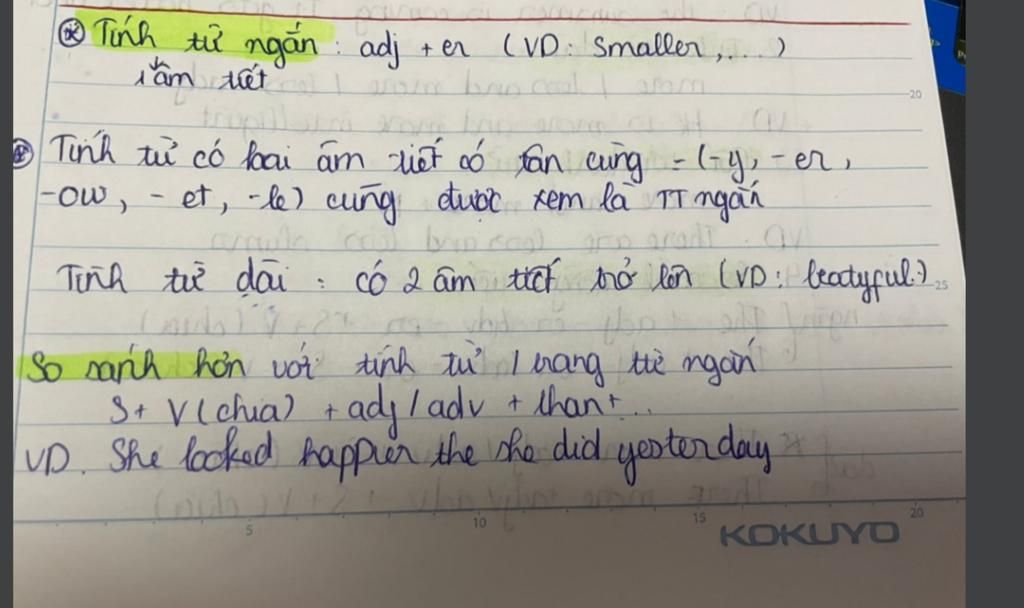 Tính từ ngắn : adj + er (VD: smaller,....)
1 âm tiết
Tính từ có hai âm tiết có tận cùng = (-y, -er,
-ow, - et, -le) cũng được xem là TT ngắn
Tính từ dài : có 2 âm tiết trở lên (VD: beatyful.)
So sánh hơn với tính từ / trạng từ ngắn
S+ V(chia) + adj / adv + than+...
VD. She looked happier the she did yesterday
20
25
5
10
15
20
KOKUYO